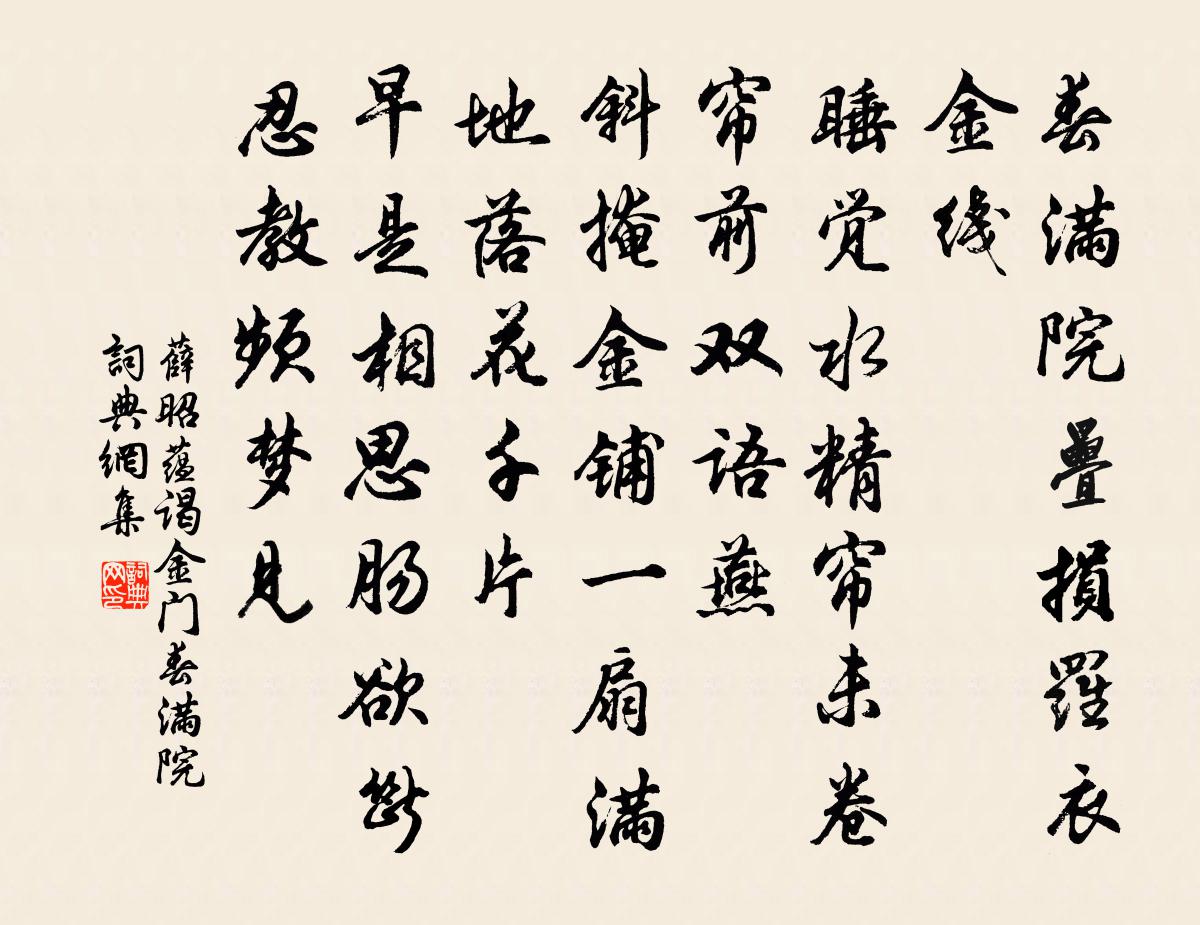 春满院疊損羅衣
金线
睡觉水精帘未卷
帘前双语燕
斜掩金铺一扇满
地落花千片
早是相思肠欲斷
忍教频梦见
薛昭蕴谒金门春满院
詞典網集
詞典网印